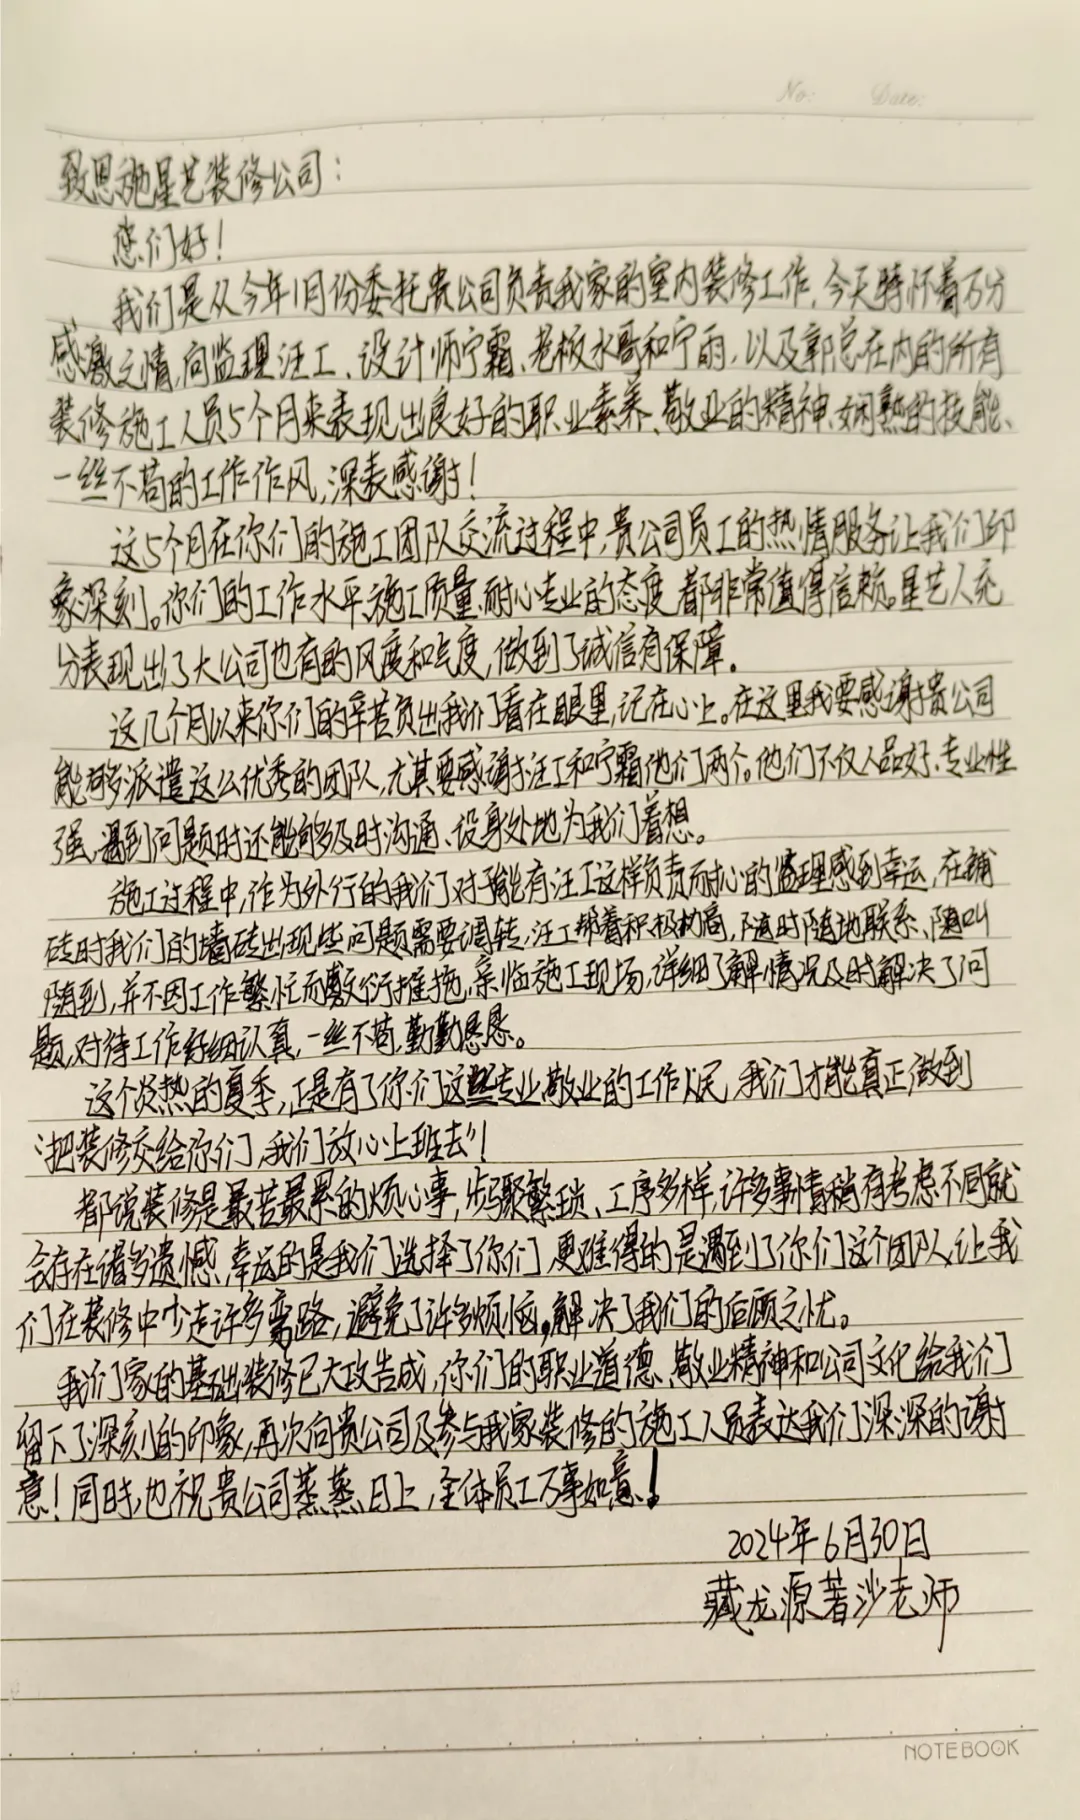 No: Date:
致恩施星艺装修公司：
您们好！
我们是从今年1月份委托贵公司负责我家的室内装修工作，今天特怀着万分
感激之情，向监理汪工、设计师宁霜、老板水哥和宁雨，以及郭总在内的所有
装修施工人员5个月来表现出良好的职业素养、敬业的精神、娴熟的技能、
一丝不苟的工作作风，深表感谢！
这5个月在你们的施工团队交流过程中，贵公司员工的热情服务让我们印
象深刻。你们的工作水平、施工质量、耐心专业的态度都非常值得信赖。星艺人充
分表现出了大公司也有的风度和气度，做到了诚信有保障。
这几个月以来你们的辛苦负出我们看在眼里，记在心上。在这里我要感谢贵公司
能够派遣这么优秀的团队，尤其要感谢汪工和宁霜他们两个。他们不仅人品好、专业性
强，遇到问题时还能够及时沟通、设身处地为我们着想。
施工过程中，作为外行的我们对于能有汪工这样负责而耐心的监理感到幸运，在铺
砖时我们的墙砖出现些问题需要调转，汪工帮着积极协商，随时随地联系、随叫
随到，并不因工作繁忙而敷衍推拖，亲临施工现场，详细了解情况及时解决了问
题，对待工作仔细认真，一丝不苟，勤勤恳恳。
这个炎热的夏季，正是有了你们这些专业敬业的工作人民，我们才能真正做到
“把装修交给你们，我们放心上班去”！
都说装修是最苦最累的烦心事，步骤繁琐、工序多样，许多事情稍有考虑不周就
会存在诸多遗憾，幸运的是我们选择了你们，更难得的是遇到了你们这个团队，让我
们在装修中少走许多弯路，避免了许多烦恼，解决了我们的后顾之忧。
我们家的基础装修已大攻告成，你们的职业道德、敬业精神和公司文化给我们
留下了深刻的印象，再次向贵公司及参与我家装修的施工人员表达我们深深的谢
意！同时，也祝贵公司蒸蒸日上，全体员工万事如意！
2024年6月30日
藏龙源著沙老师
NOTEBOOK